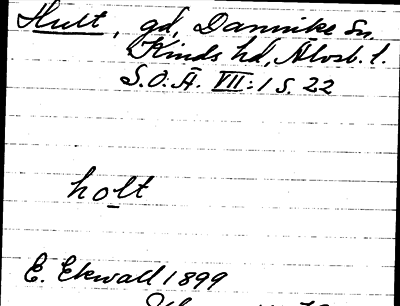 Hult, gd, Dannike sn,
Kinds hd, Älvsb. l.
S.O.Ä. VII:1 s. 22
holt
E. Ekwall 1899